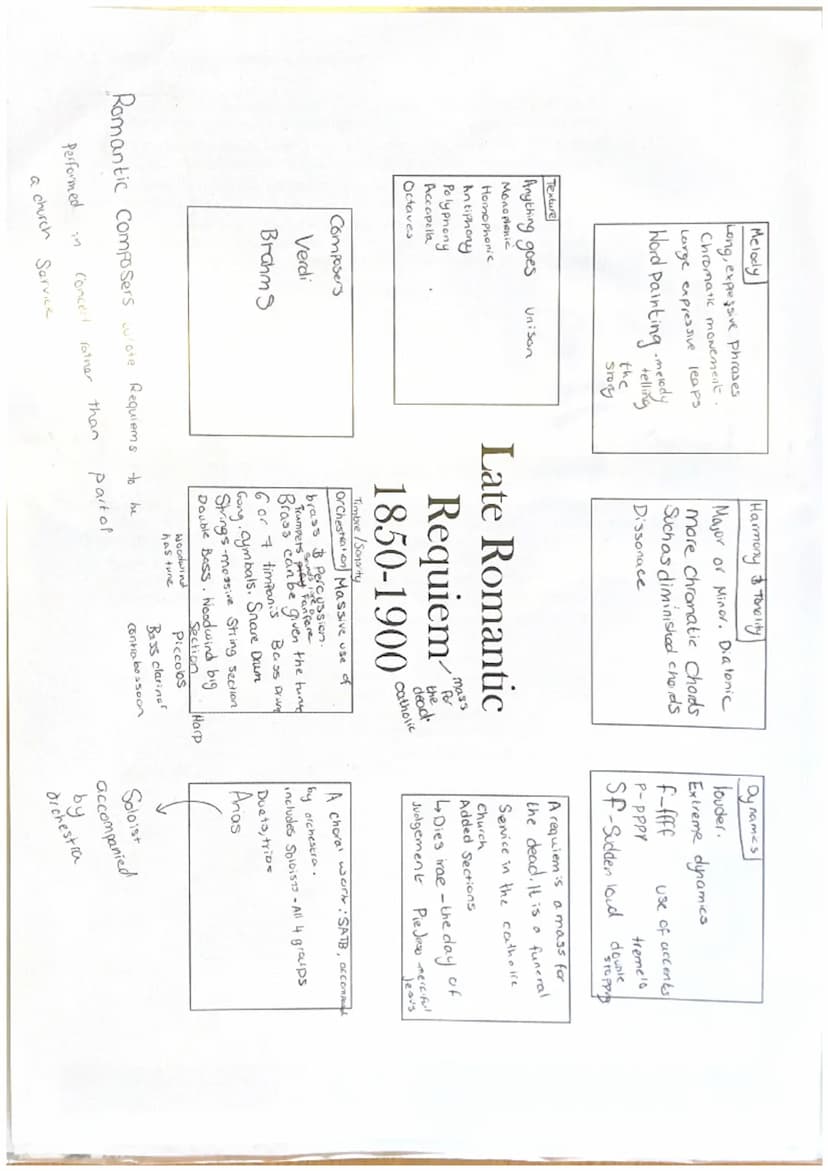 Melody
Long, expressive phrases
Chromatic movement.
Large expressive leaps
Word painting. melody
telling
the
story
Harmony & Tonality
Major or Minor. Diatonic
more chromatic chords
Such as diminished chords
Dissonace
Dynamics
louder.
Extreme dynamics
f-ffff use of accents
P-pppp tremelo
Sf - Sudden loud double
stopping
Texture
Anything goes unison
Monophonic
Homophonic
Antiphony
Polyphony
Accapella
Octaves
Late Romantic
Requiem
1850-1900
mass
for
the
dead
catholic
A requiem is a mass for
the dead. It is a funeral
Service in the catholic
church
Added Sections
↳ Dies irae - the day of
Judgement Pie Jesu - merciful
Jesus
Composers
Verdi
Brahms
Timbre / Sonority
orchestration Massive use of
brass & Percussion.
Trumpets Fanfare
Brass can be given the tune
6 or 7 timpanis Bass Drum
Gong. Cymbals. Snare Drum
Strings - massive String section
Double Bass. Woodwind big
Section
Harp
woodwind
has tune.
Piccolos
Bass clarinet
contrabassoon
A choral work: SATB,
by orchestra.
includes Soloists - All 4 groups
Duets, trios
Arias
Soloist
accompanied
by
orchestra
Romantic Composers wrote Requiems to be
performed in concert rather than part of
a church Service